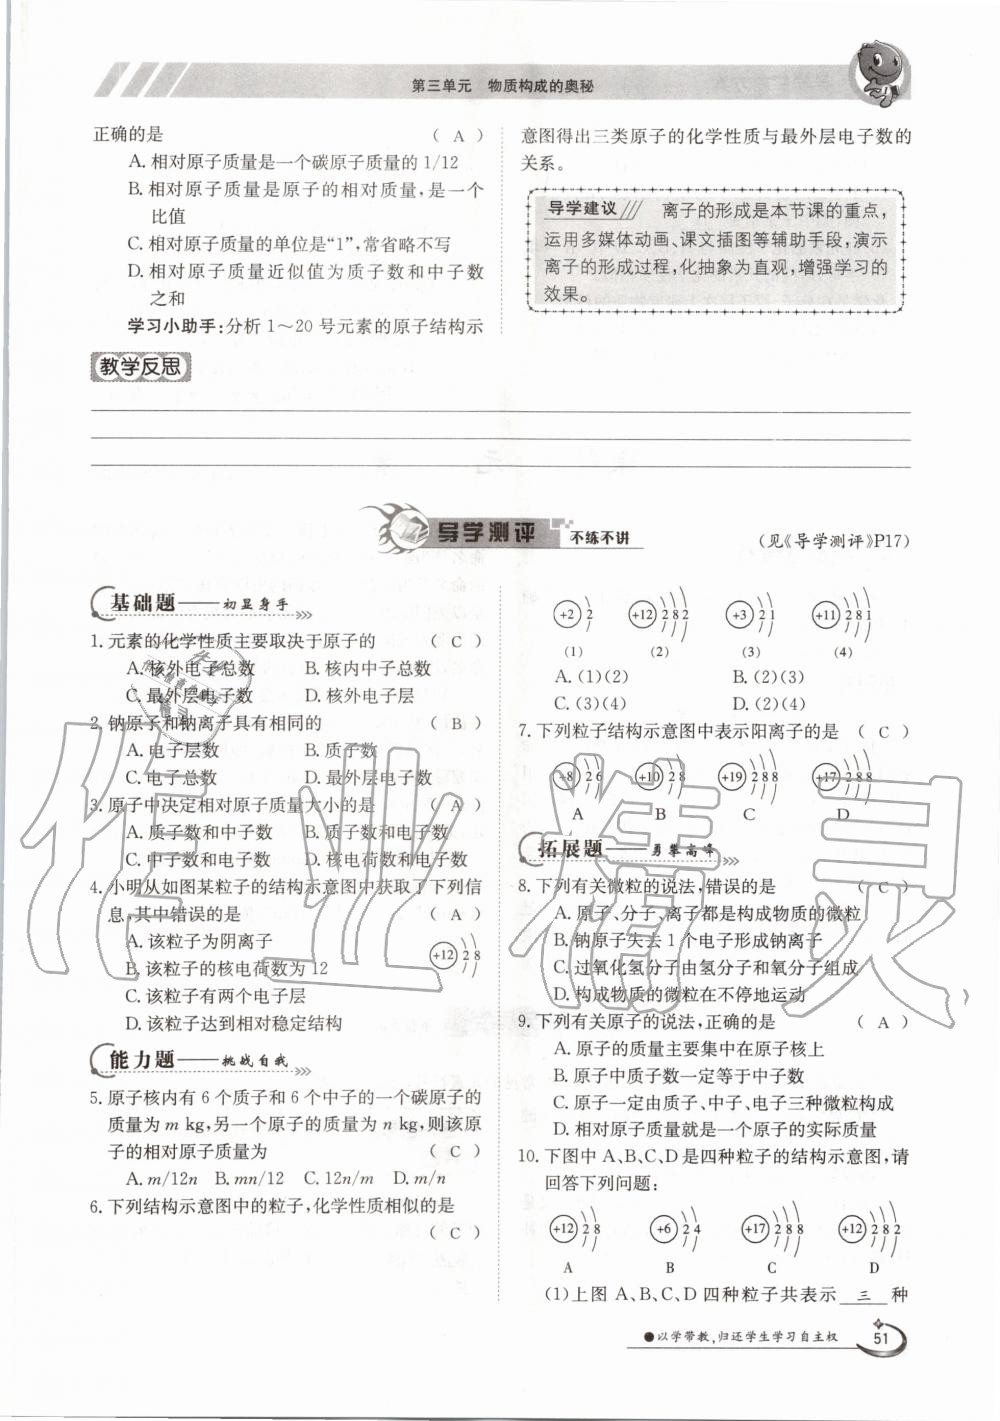 第三单元 物质构成的奥秘
正确的是 ( A )
A. 相对原子质量是一个碳原子质量的 1/12
B. 相对原子质量是原子的相对质量,是一个
比值
C. 相对原子质量的单位是“1”,常省略不写
D. 相对原子质量近似值为质子数和中子数
之和
学习小助手:分析 1～20 号元素的原子结构示
意图得出三类原子的化学性质与最外层电子数的
关系。
导学建议 离子的形成是本节课的重点,
运用多媒体动画、课文插图等辅助手段,演示
离子的形成过程,化抽象为直观,增强学习的
效果。
教学反思
导学测评 不练不讲
(见《导学测评》P17)
基础题——初显身手
1. 元素的化学性质主要取决于原子的 ( C )
A. 核外电子总数 B. 核内中子总数
C. 最外层电子数 D. 核外电子层
2. 钠原子和钠离子具有相同的 ( B )
A. 电子层数 B. 质子数
C. 电子总数 D. 最外层电子数
3. 原子中决定相对原子质量大小的是 ( A )
A. 质子数和中子数 B. 质子数和电子数
C. 中子数和电子数 D. 核电荷数和电子数
4. 小明从如图某粒子的结构示意图中获取了下列信
息,其中错误的是 ( A )
A. 该粒子为阴离子
+12 2 8
B. 该粒子的核电荷数为 12
C. 该粒子有两个电子层
D. 该粒子达到相对稳定结构
能力题——挑战自我
5. 原子核内有 6 个质子和 6 个中子的一个碳原子的
质量为 m kg,另一个原子的质量为 n kg,则该原
子的相对原子质量为 ( C )
A. m/12n B. mn/12 C. 12n/m D. m/n
6. 下列结构示意图中的粒子,化学性质相似的是
( C )
+2 2 +12 2 8 2 +3 2 1 +11 2 8 1
(1) (2) (3) (4)
A. (1)(2) B. (2)(3)
C. (3)(4) D. (2)(4)
7. 下列粒子结构示意图中表示阳离子的是 ( C )
+8 2 6 +10 2 8 +19 2 8 8 +17 2 8 8
A B C D
拓展题——勇攀高峰
8. 下列有关微粒的说法,错误的是 ( C )
A. 原子、分子、离子都是构成物质的微粒
B. 钠原子失去 1 个电子形成钠离子
C. 过氧化氢分子由氢分子和氧分子组成
D. 构成物质的微粒在不停地运动
9. 下列有关原子的说法,正确的是 ( A )
A. 原子的质量主要集中在原子核上
B. 原子中质子数一定等于中子数
C. 原子一定由质子、中子、电子三种微粒构成
D. 相对原子质量就是一个原子的实际质量
10. 下图中 A、B、C、D 是四种粒子的结构示意图,请
回答下列问题:
+12 2 8 +6 2 4 +17 2 8 8 +12 2 8 2
A B C D
(1)上图 A、B、C、D 四种粒子共表示 三 种
●以学带教,归还学生学习自主权
51
作业精灵